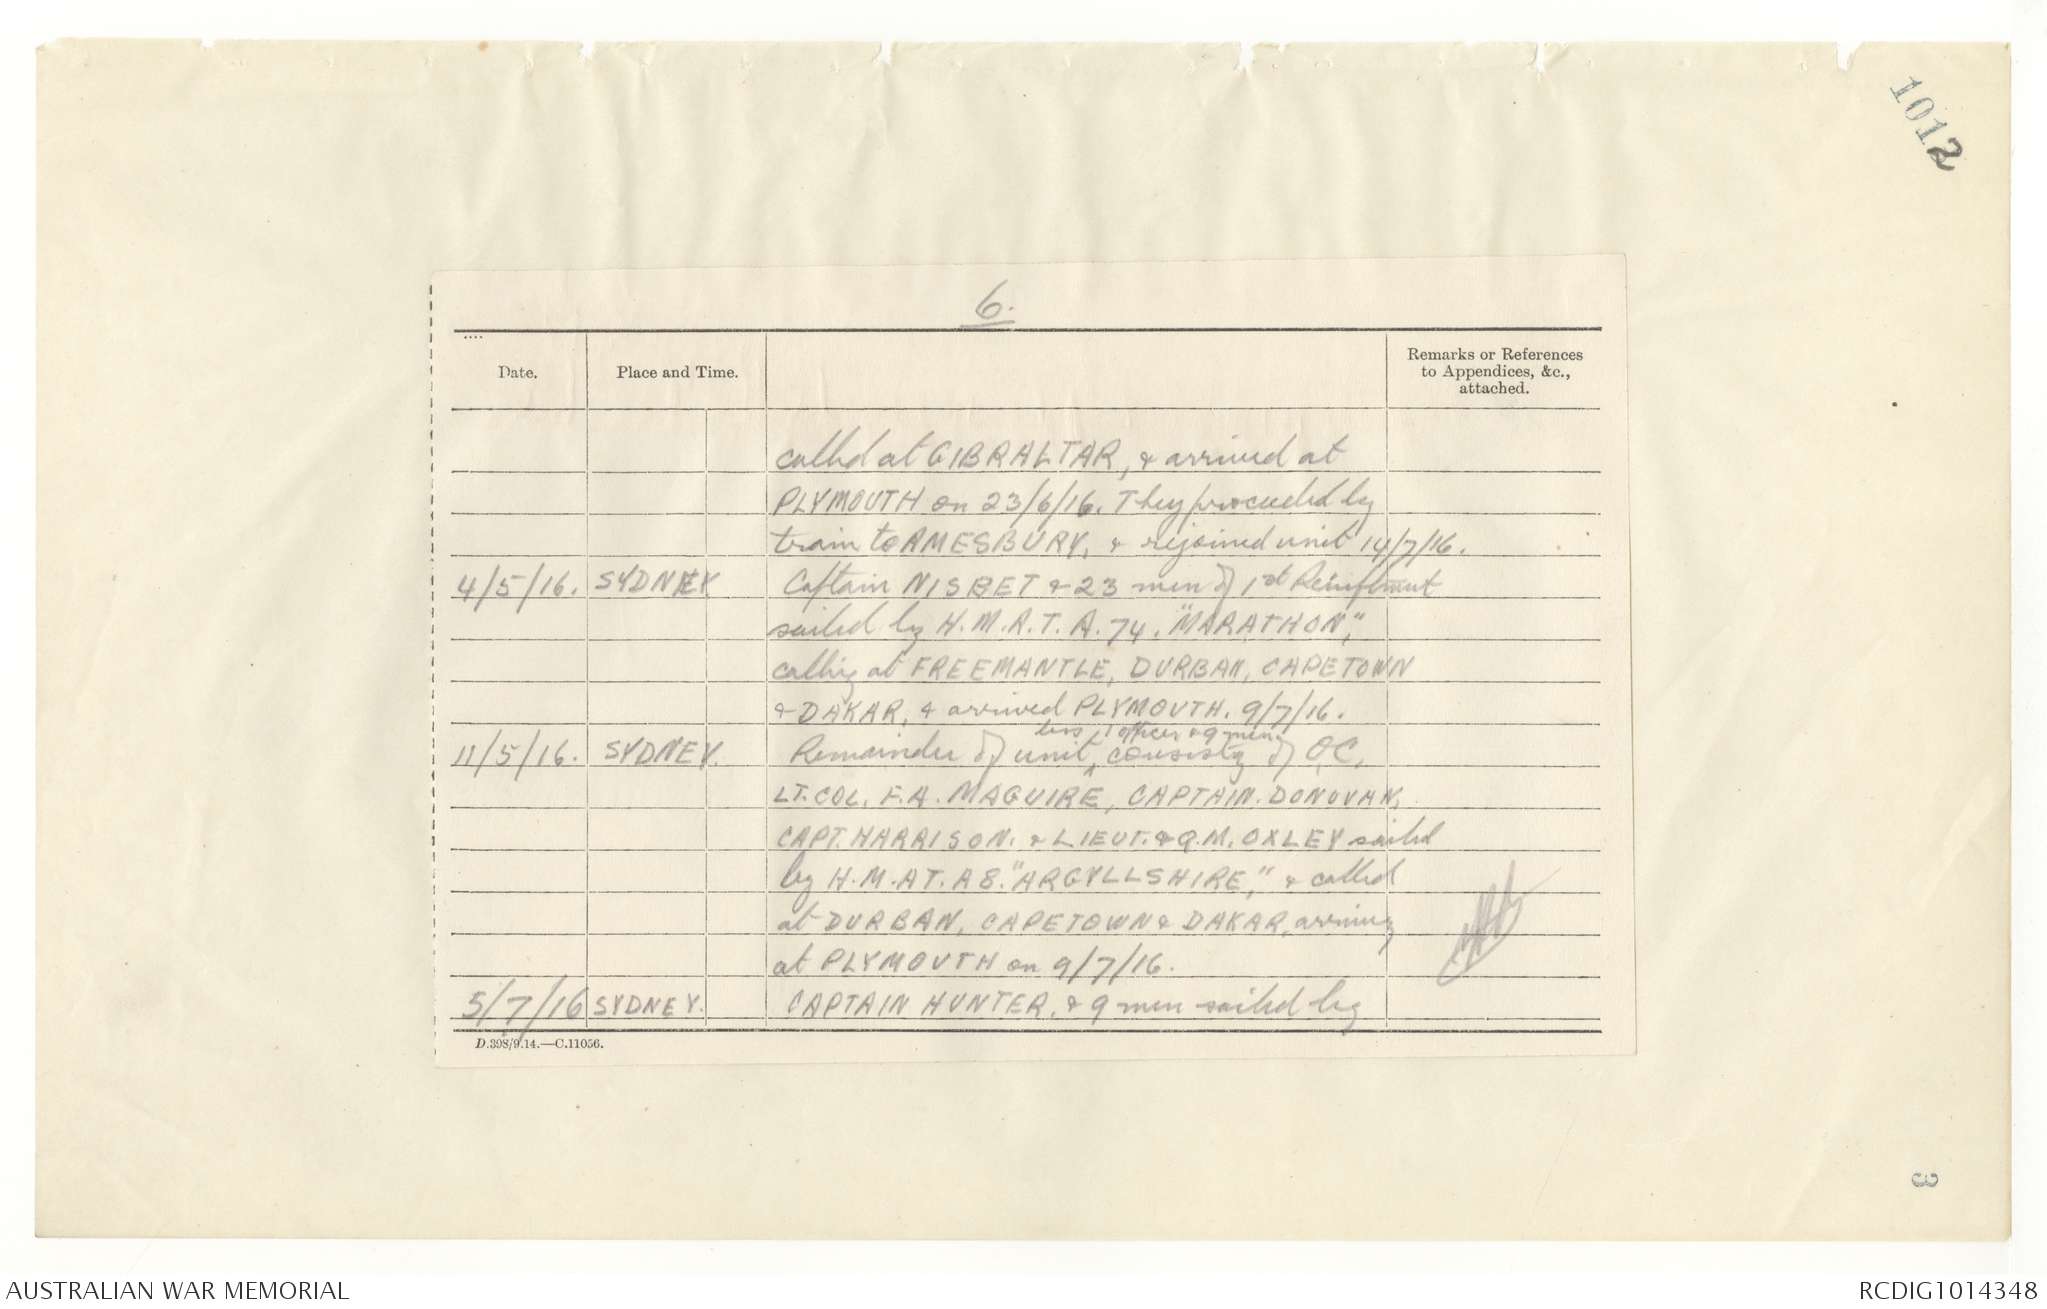 1012
6.
Date.
Place and Time.
Remarks or References
to Appendices, &c.,
attached.
called at GIBRALTAR, & arrived at
PLYMOUTH on 23/6/16. They proceeded by
train to AMESBURY, & rejoined unit 14/7/16.
4/5/16. SYDNEY Captain NISBET & 23 men of 1st Reinftment
sailed by H.M.A.T. A.74. "MARATHON,"
calling at FREEMANTLE, DURBAN, CAPETOWN
& DAKAR, & arrived PLYMOUTH. 9/7/16.
less 1 officer & 9 men
11/5/16. SYDNEY. Remainder of unit, consistg of O.C.
LT. COL. F.A. MAGUIRE, CAPTAIN. DONOVAN,
CAPT. HARRISON. & LIEUT. & Q.M. OXLEY sailed
by H.M.A.T. A 8. "ARGYLLSHIRE," & called
at DURBAN, CAPETOWN & DAKAR, arriving
at PLYMOUTH on 9/7/16.
5/7/16 SYDNEY. CAPTAIN HUNTER. & 9 men sailed by
D.398/9.14.—C.11056.
3
AUSTRALIAN WAR MEMORIAL
RCDIG1014348